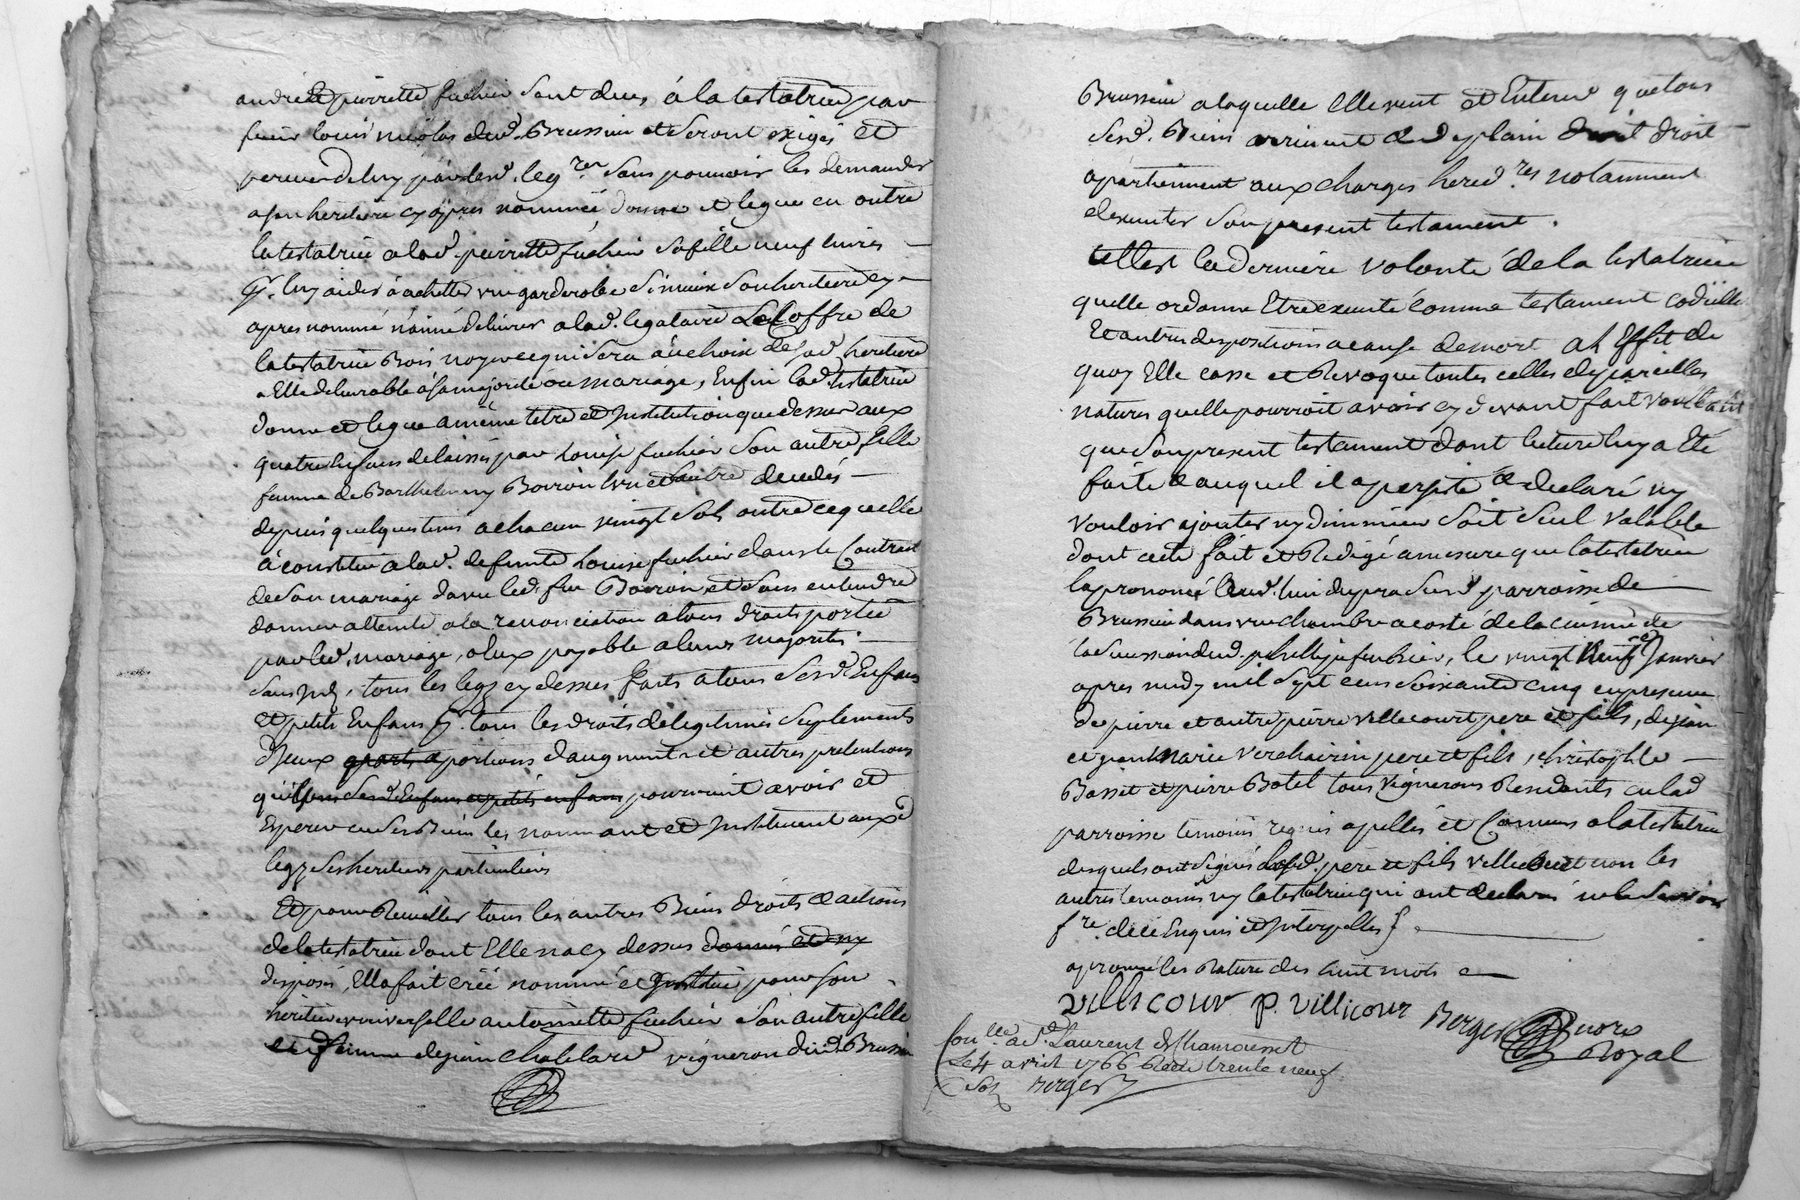 andré et pierrette fuchier sont dues, à la testatrice par
sieur louis nicolas dud. Brussieu et seront exigés et
percues de luy par lesd. legres sans pouvoir les demander
a son heritiere cy apres nommée donne et legue en outre
la testatrice a lad. pierrette fuchier sa fille neuf livres
pr. luy aider à achetter une garderobe si mieux son heritiere cy
apres nommé n'aime delivrer a lad. legataire le coffre de
la testatrice Bois noyer ce qui sera au choix de sad. heritiere
a Elle delivrable à sa majorité ou mariage, Enfin lad. testatrice
donne et legue a même titre et Institution que dessus aux
quatre enfans delaissés par Louise fuchier son autre fille
femme de Barthelemy Boiron l'un et l'autre decedés
depuis quelques tems a chacun vingt sols outre ce quelle
à constitué a lad. defunte Louise fuchier dans le Contract
de son mariage d'avec led. feu Boiron et sans entendre
donner atteinte a la renonciation a tous droits portée
par led. mariage, a eux payable a leurs majorités
sans Int. tous les legs cy dessus faits a tous sesd. Enfans
et petits Enfans pr. tous les droits de legitimes suplements
d'Iceux quarts portions d'augments et autres pretentions
qu'ils sesd. Enfans et petits enfans pourroient avoir et
Esperer en ses Biens les nommant et Instituant auxd.
legs ses heritiers particuliers
Et pour Recueillir tous les autres Biens droits & actions
de la testatrice dont Elle n'a cy dessus donnés et ny
disposé, Elle a fait créé nommé et Institué pour son
héritiere universelle antoinette fuchier son autre fille
et femme de jean Chatelard vigneron dud. Brussieu
Brussieu a laquelle Elle veut et Entend que tous
sesd. Biens arrivent & de plain droit droit
apartiennent aux charges heredres notamment
d'executer son present testament.
telle est la derniere volonté de la testatrice
quelle ordonne Etre executé comme testament codicille
Et autres dispositions a cause de mort a l'Effet de
quoy Elle casse et Revoque toutes celles de pareilles
natures quelle pourroit avoir cy devant fait voulant
que son present testament dont lecture luy a Eté
faite & auquel il a persisté & declaré ny
vouloir ajouter ny diminuer soit seul valable
dont acte fait et Redigé a mesure que la testatrice
la prononcé aud. lieu du pra sur d. parroisse de
Brussieu dans une chambre a costé de la cuisine de
la succession dud. philippe fuchier, le vingt neufe Janvier
apres midy mil sept cens soixante cinq en presence
de pierre et autre pierre Villecourt pere et fils, de jean
et jean Marie Verchairin pere et fils, christophle
Basset et pierre Botel tous vignerons Residants en lad.
parroisse temoins requis apellés et Connus a la testatrice
desquels ont signés lesd. pere et fils villecourt non les
autres temoins ny la testatrice qui ont declaré ne le scavoir
fre. de ce Enquis et Interpellés
aprouvé les Rature des huit mots
Villicour P. villicour Berger no.re
Royal
Conllé a St. Laurent de Chamousset
Le 4 avril 1766 Recu trente neuf
sols Berger